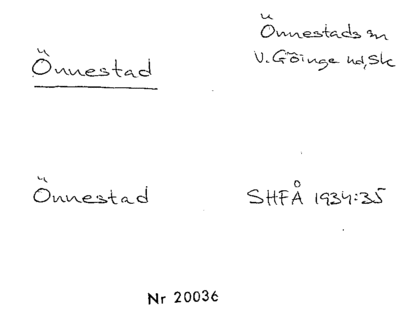 Önnestad
Önnestads sn
V. Göinge hd, Sk
Önnestad
SHFÅ 1934:35
Nr 20036